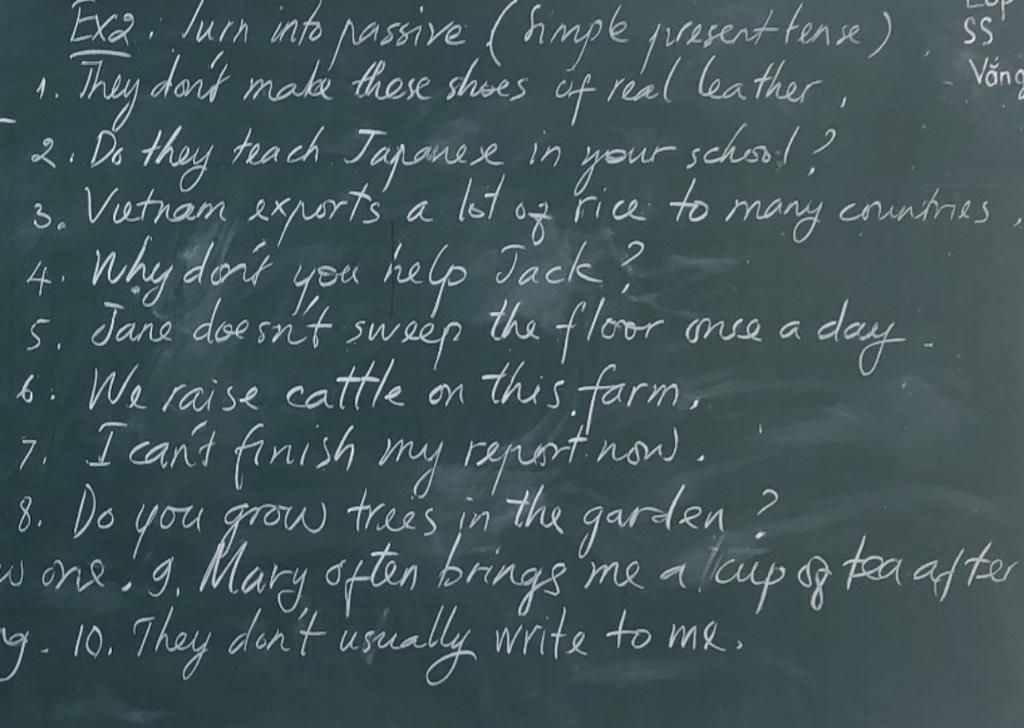 Lớp
Ex2. Turn into passive (Simple present tense)
SS
Vắng
1. They don't make these shoes of real leather.
2. Do they teach Japanese in your school?
3. Vietnam exports a lot of rice to many countries.
4. Why don't you help Jack?
5. Jane doesn't sweep the floor once a day.
6. We raise cattle on this farm.
7. I can't finish my report now.
8. Do you grow trees in the garden?
one. 9. Mary often brings me a cup of tea after
10. They don't usually write to me.